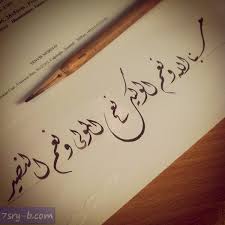 حسبنا الله ونعم الوكيل نعم المولى ونعم النصير
7sry-b.com